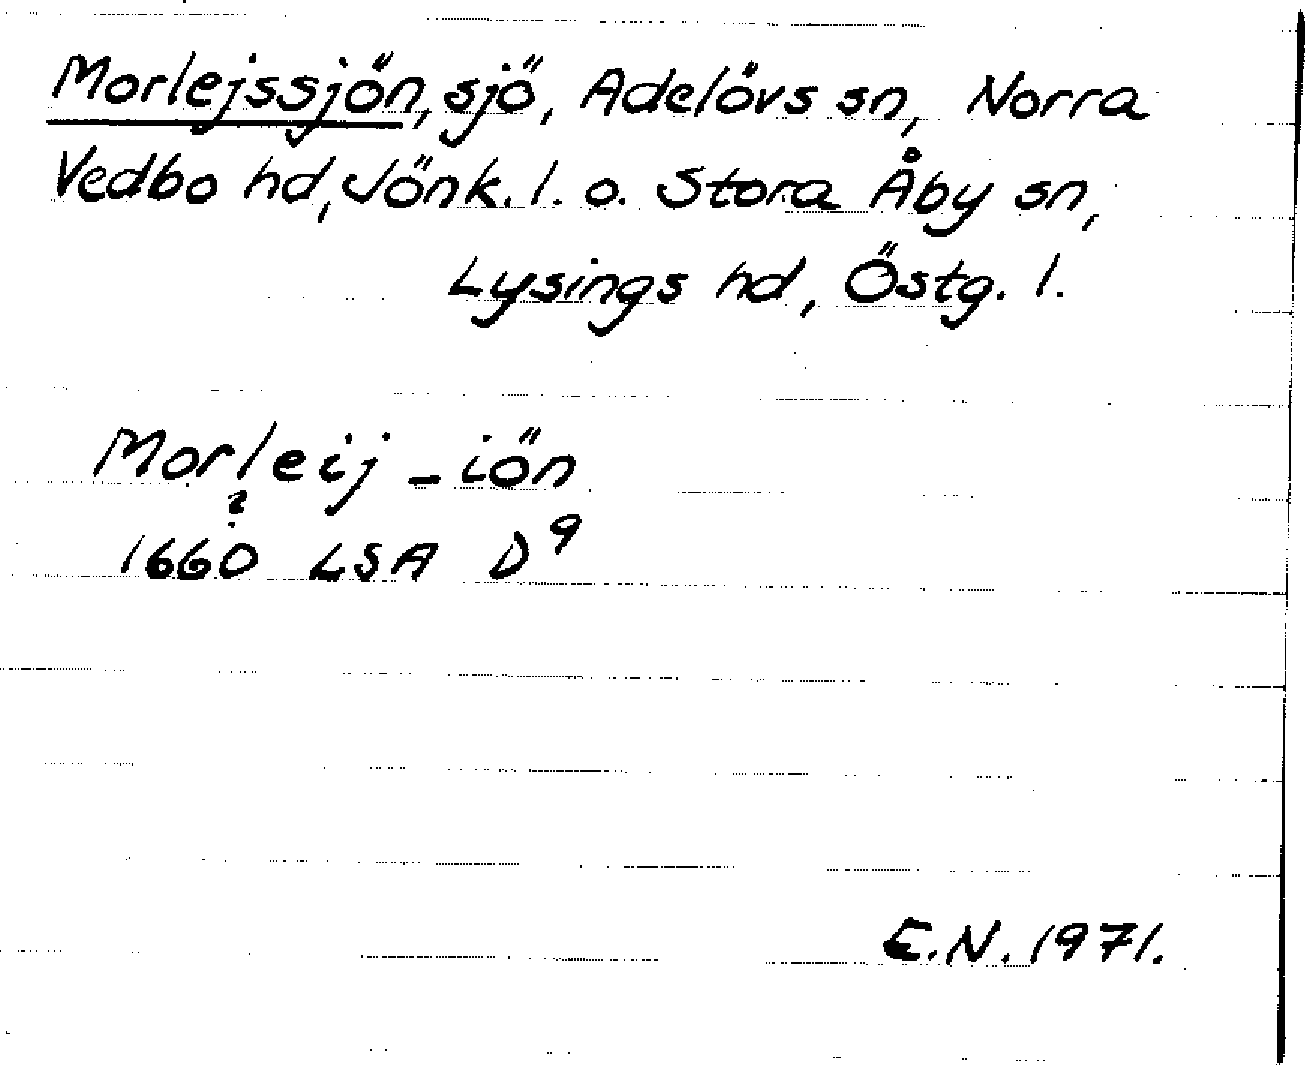 Morlejssjön, sjö, Adelövs sn, Norra
Vedbo hd, Jönk. l. o. Stora Åby sn,
Lysings hd, Östg. l.
Morleij - iön
?
1660 LSA D9
E.N. 1971.